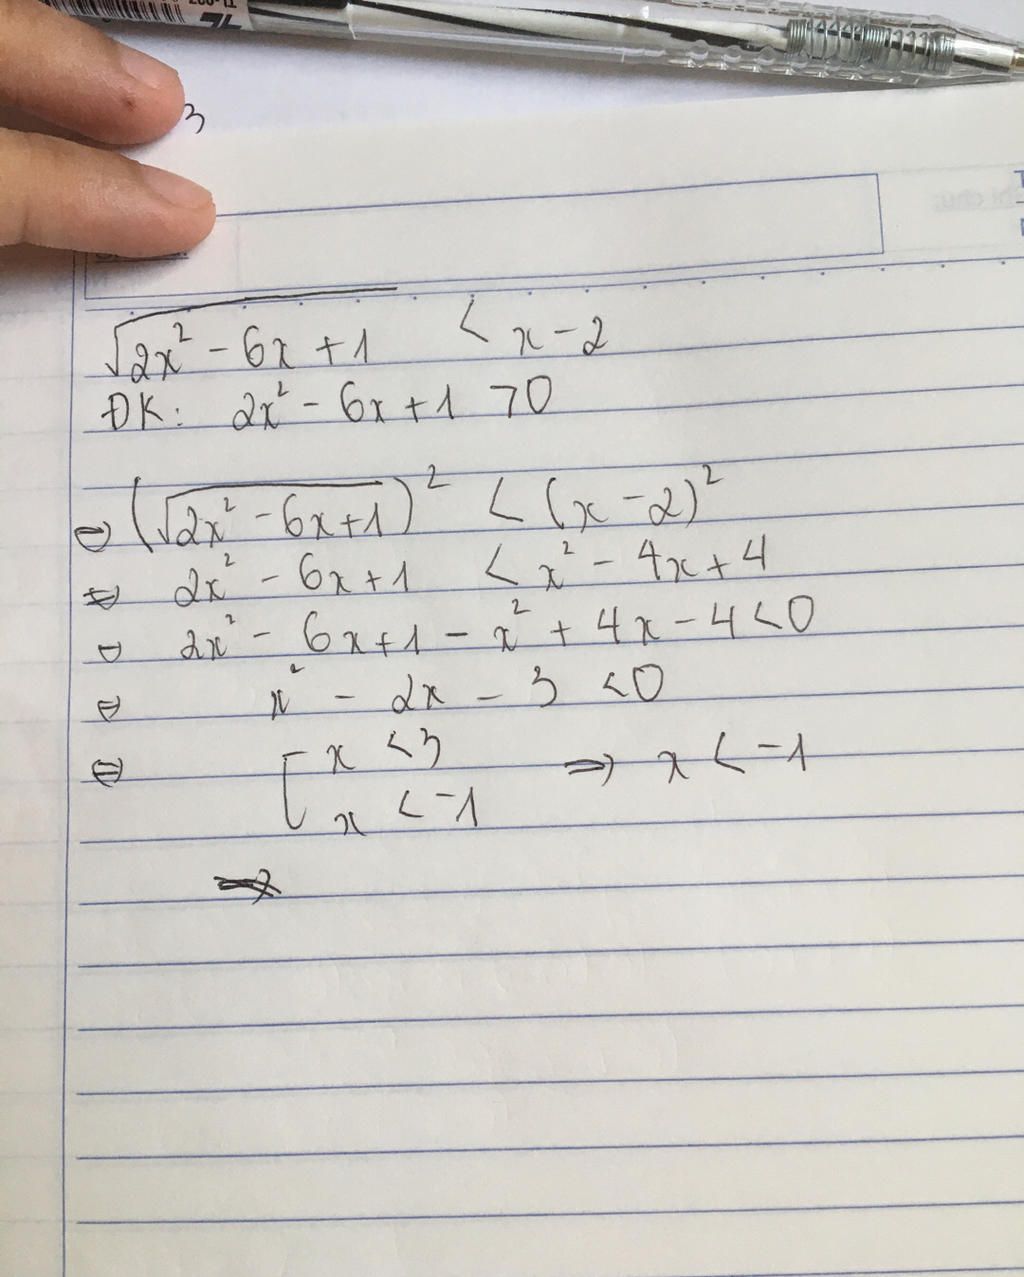 3
√(2x² - 6x + 1) < x - 2
ĐK: 2x² - 6x + 1 > 0
⇔ (√(2x² - 6x + 1))² < (x - 2)²
⇔ 2x² - 6x + 1 < x² - 4x + 4
⇔ 2x² - 6x + 1 - x² + 4x - 4 < 0
⇔ x² - 2x - 3 < 0
⇔ [ x < 3 ⇒ x < -1
x < -1